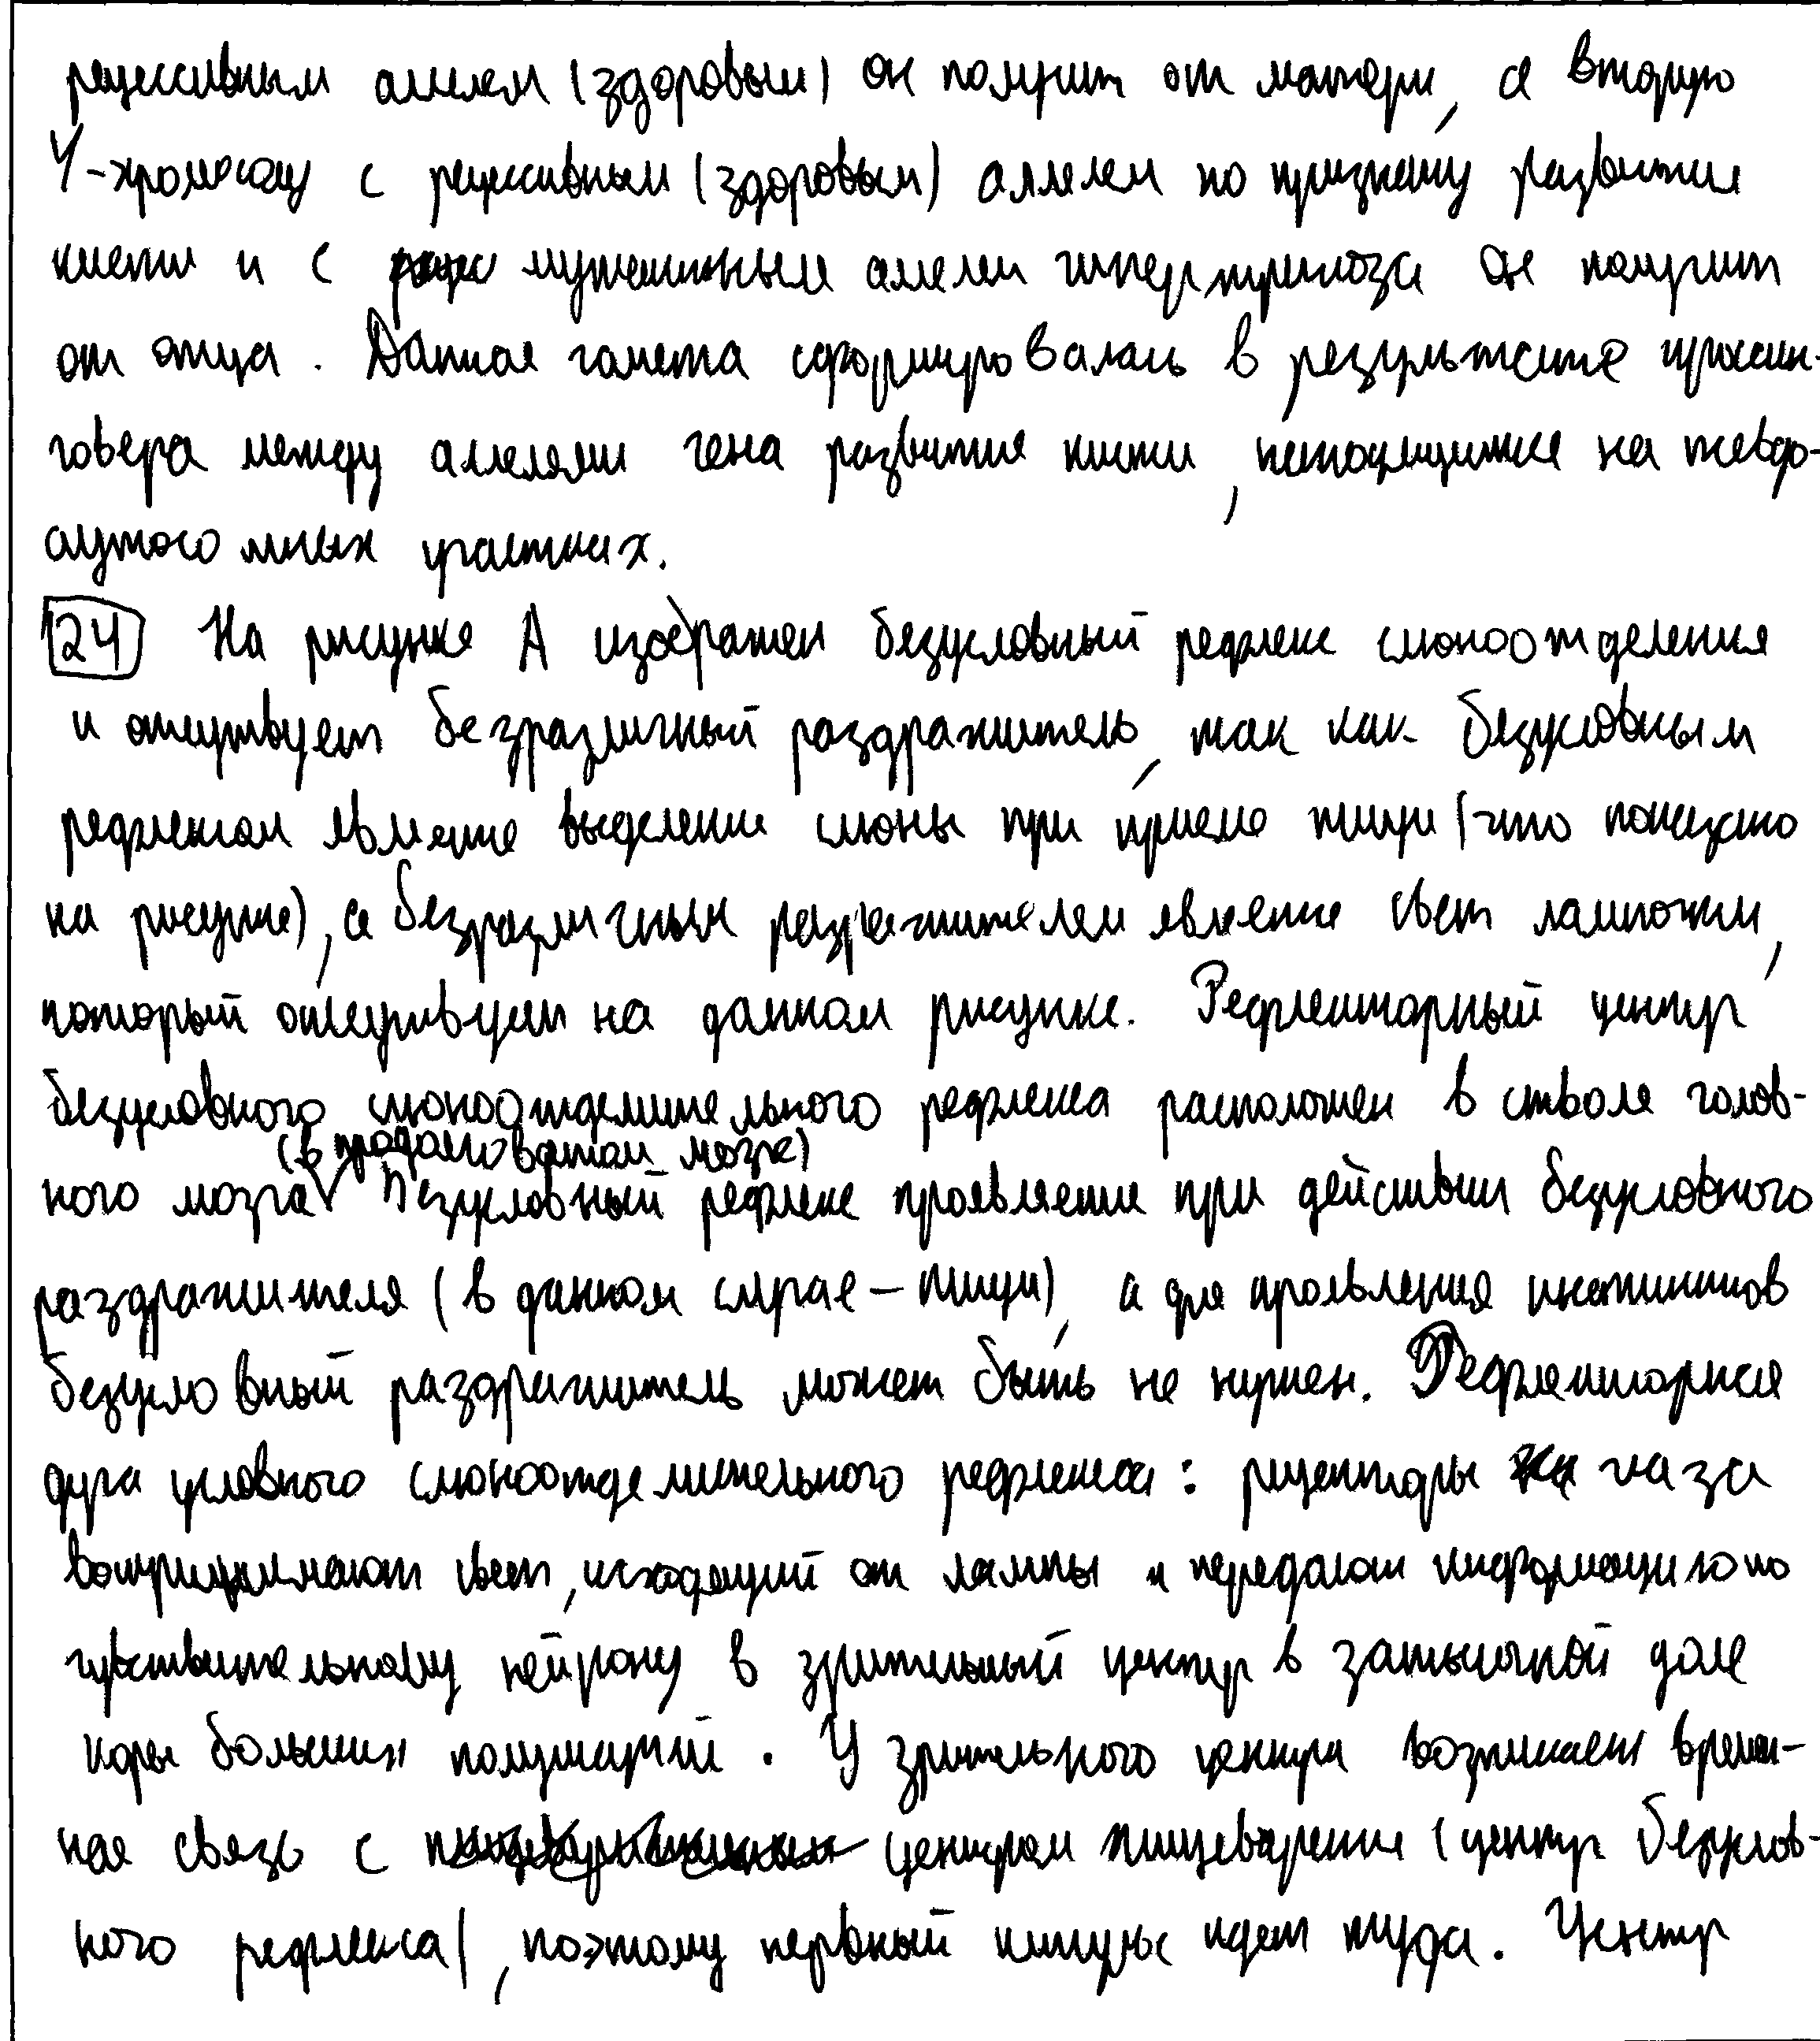 рецессивным аллелем (здоровым) он получит от матери, а вторую
Y-хромосому с рецессивным (здоровым) аллелем по признаку развития
кисти и с мутантным аллелем гипертрихоза он получит
от отца. Данная гамета сформировалась в результате кроссин-
говера между аллелями гена развития кисти, находящимися на псевдо-
аутосомных участках.
24 На рисунке А изображен безусловный рефлекс слюноотделения
и отсутствует безразличный раздражитель, так как безусловным
рефлексом является выделение слюны при приеме пищи (что показано
на рисунке), а безразличным раздражителем является свет лампочки,
который отсутствует на данном рисунке. Рефлекторный центр
безусловного слюноотделительного рефлекса расположен в стволе голов-
(в продолговатом мозге)
ного мозга. Безусловный рефлекс проявляется при действии безусловного
раздражителя (в данном случае - пищи), а для проявления инстинктов
безусловный раздражитель может быть не нужен. Рефлекторная
дуга условного слюноотделительного рефлекса: рецепторы глаза
воспринимают свет, исходящий от лампы и передают информацию по
чувствительному нейрону в зрительный центр в затылочной доле
коры больших полушарий. У зрительного центра возникает времен-
ная связь с центром пищеварения (центр безуслов-
ного рефлекса), поэтому нервный импульс идет туда. Центр